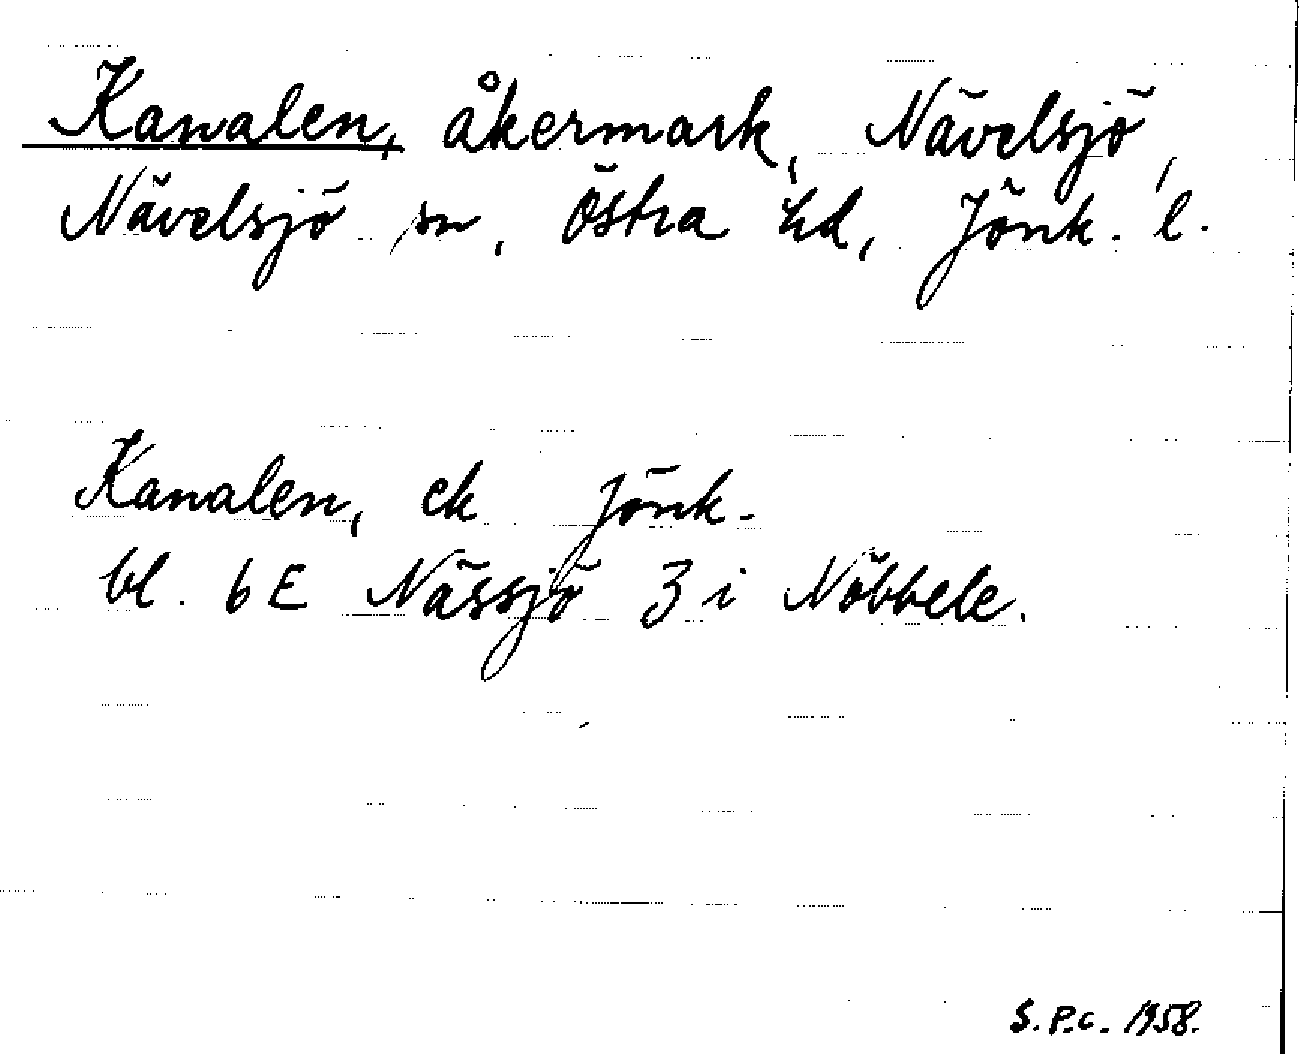 Kanalen, åkermark, Nävelsjö,
Nävelsjö sn, Östra hd, Jönk. l.
Kanalen, ek Jönk.
bl. 6E Nässjö 3 i Nöbbele.
S.P.C. 1958.